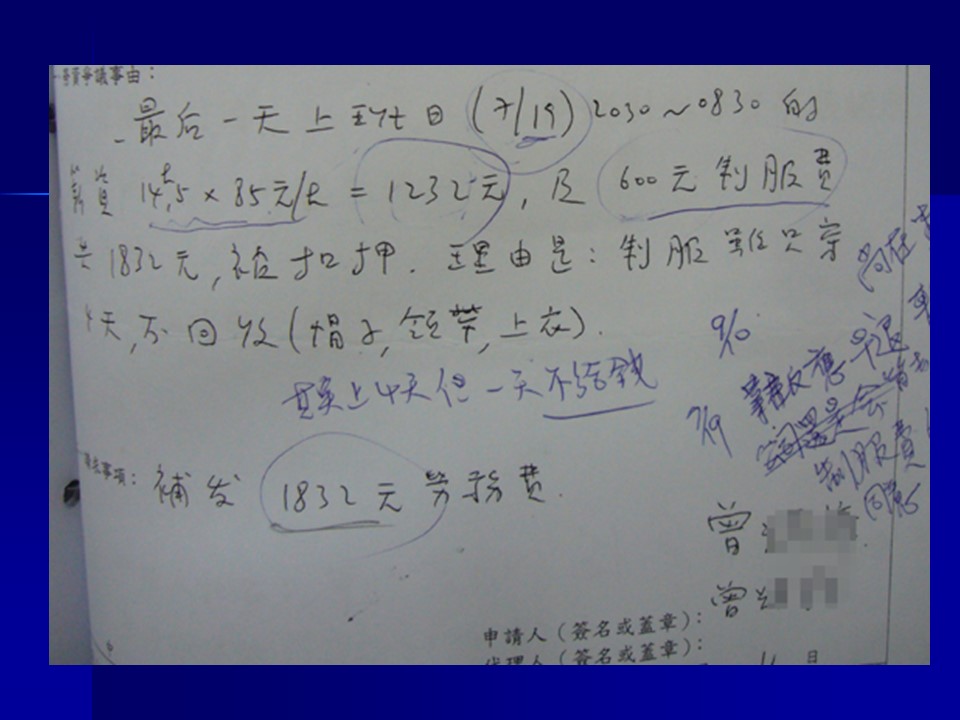 勞資爭議事由：
最后一天上班日(7/19) 2030～0830的
薪資 14.5 × 85元/h = 1232元，及 600元制服費
共1832元，被扣押．理由是：制服雖只穿
4天，不回收(帽子，領帶，上衣)．
其實上4天但一天不給錢
9/10
7/19
早退
制服費
同意
請求事項：補发 1832元 勞務費．
曾
曾
申請人（簽名或蓋章）：
代理人（簽名或蓋章）：
日